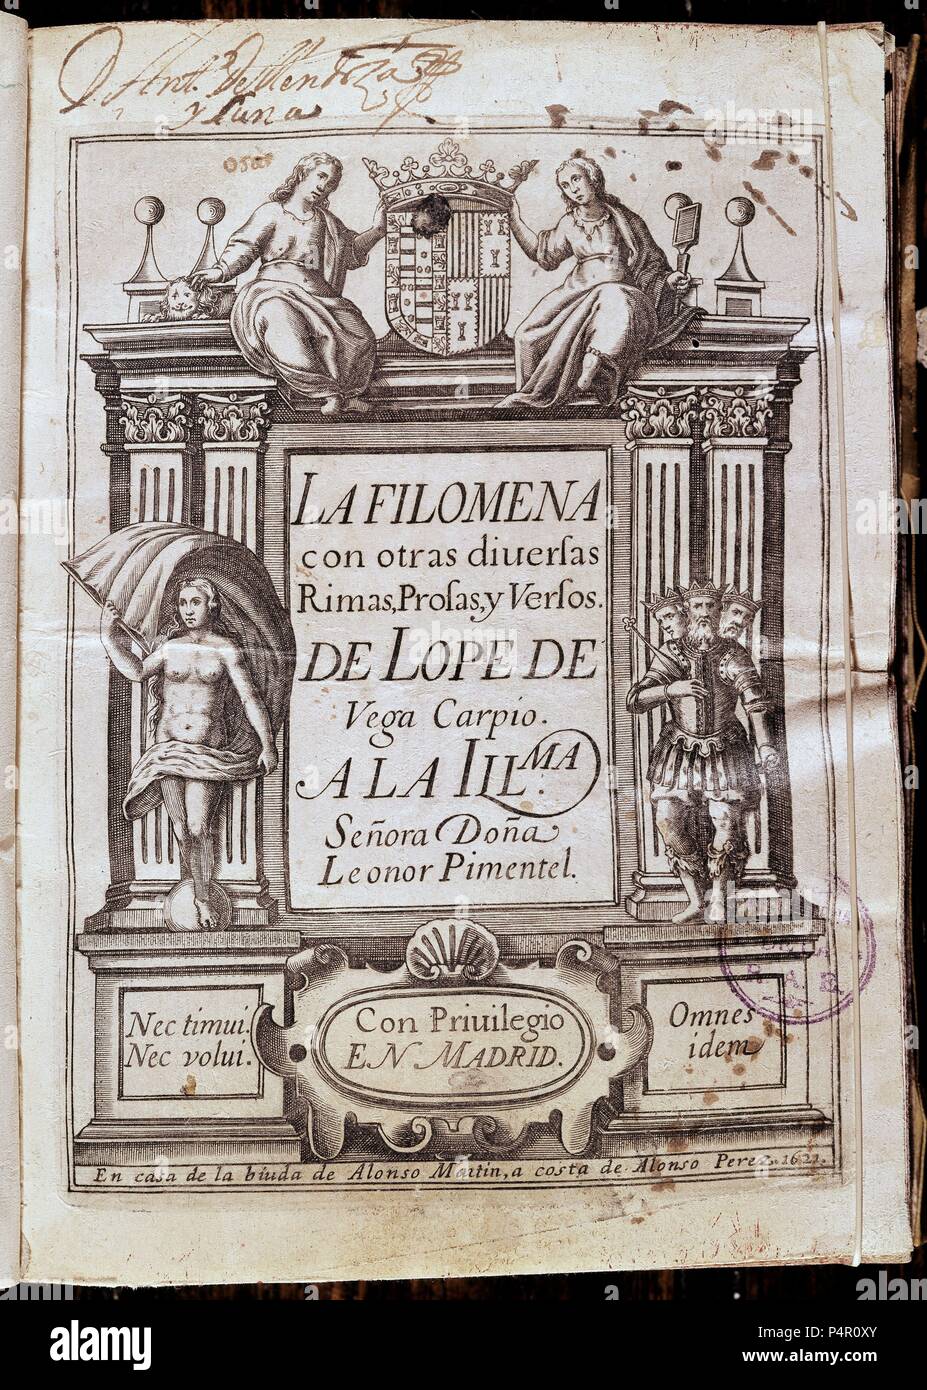 D. Antº. de Mendoza
y luna
LA FILOMENA
con otras diuerſas
Rimas, Proſas, y Verſos.
DE LOPE DE
Vega Carpio.
A LA ILL.MA
Señora Doña
Leonor Pimentel.
Nec timui.
Nec volui.
Con Priuilegio
EN MADRID.
Omnes
idem
En casa de la biuda de Alonso Martin, a costa de Alonso Perez. 1621.
alamy
Image ID: P4R0XY
www.alamy.com